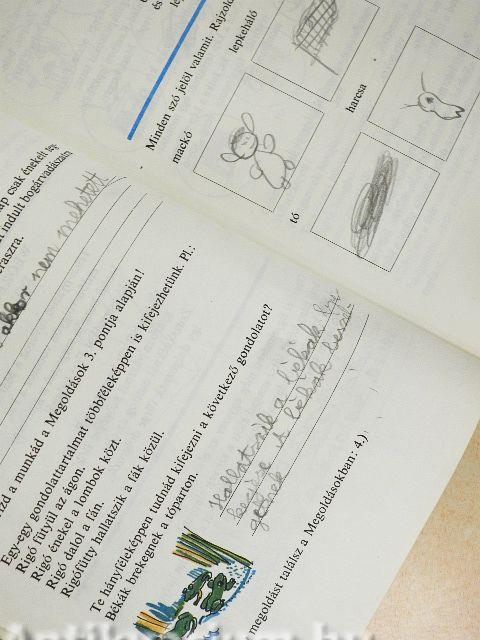 és
Minden szó jelöl valamit. Rajzold
lepkeháló
mackó
harcsa
tó
ap csak énekelt
indult bogárvadászatra
akkor nem mehetett
d a munkád a Megoldások 3. pontja alapján!
Egy-egy gondolattartalmat többféleképpen is kifejezhetünk. Pl.:
Rigó fütyül az ágon.
Rigó énekel a lombok közt.
Rigó dalol a fán.
Rigófütty hallatszik a fák közül.
Te hányféleképpen tudnád kifejezni a következő gondolatot?
Békák brekegnek a tóparton.
Hallatszik a békák bre
kegése A békák
megoldást találsz a Megoldásokban: 4.)